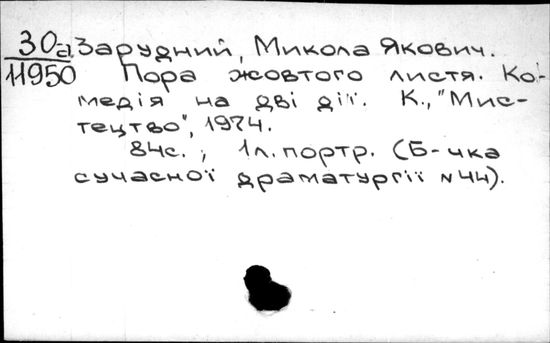 30а Зарудний, Микола Якович.
11950 Пора жовтого листя. Ко-
медія на дві дії. К., "Мис-
тецтво", 1974.
84с.; 1л. портр. (Б-чка
сучасної драматургії №44).